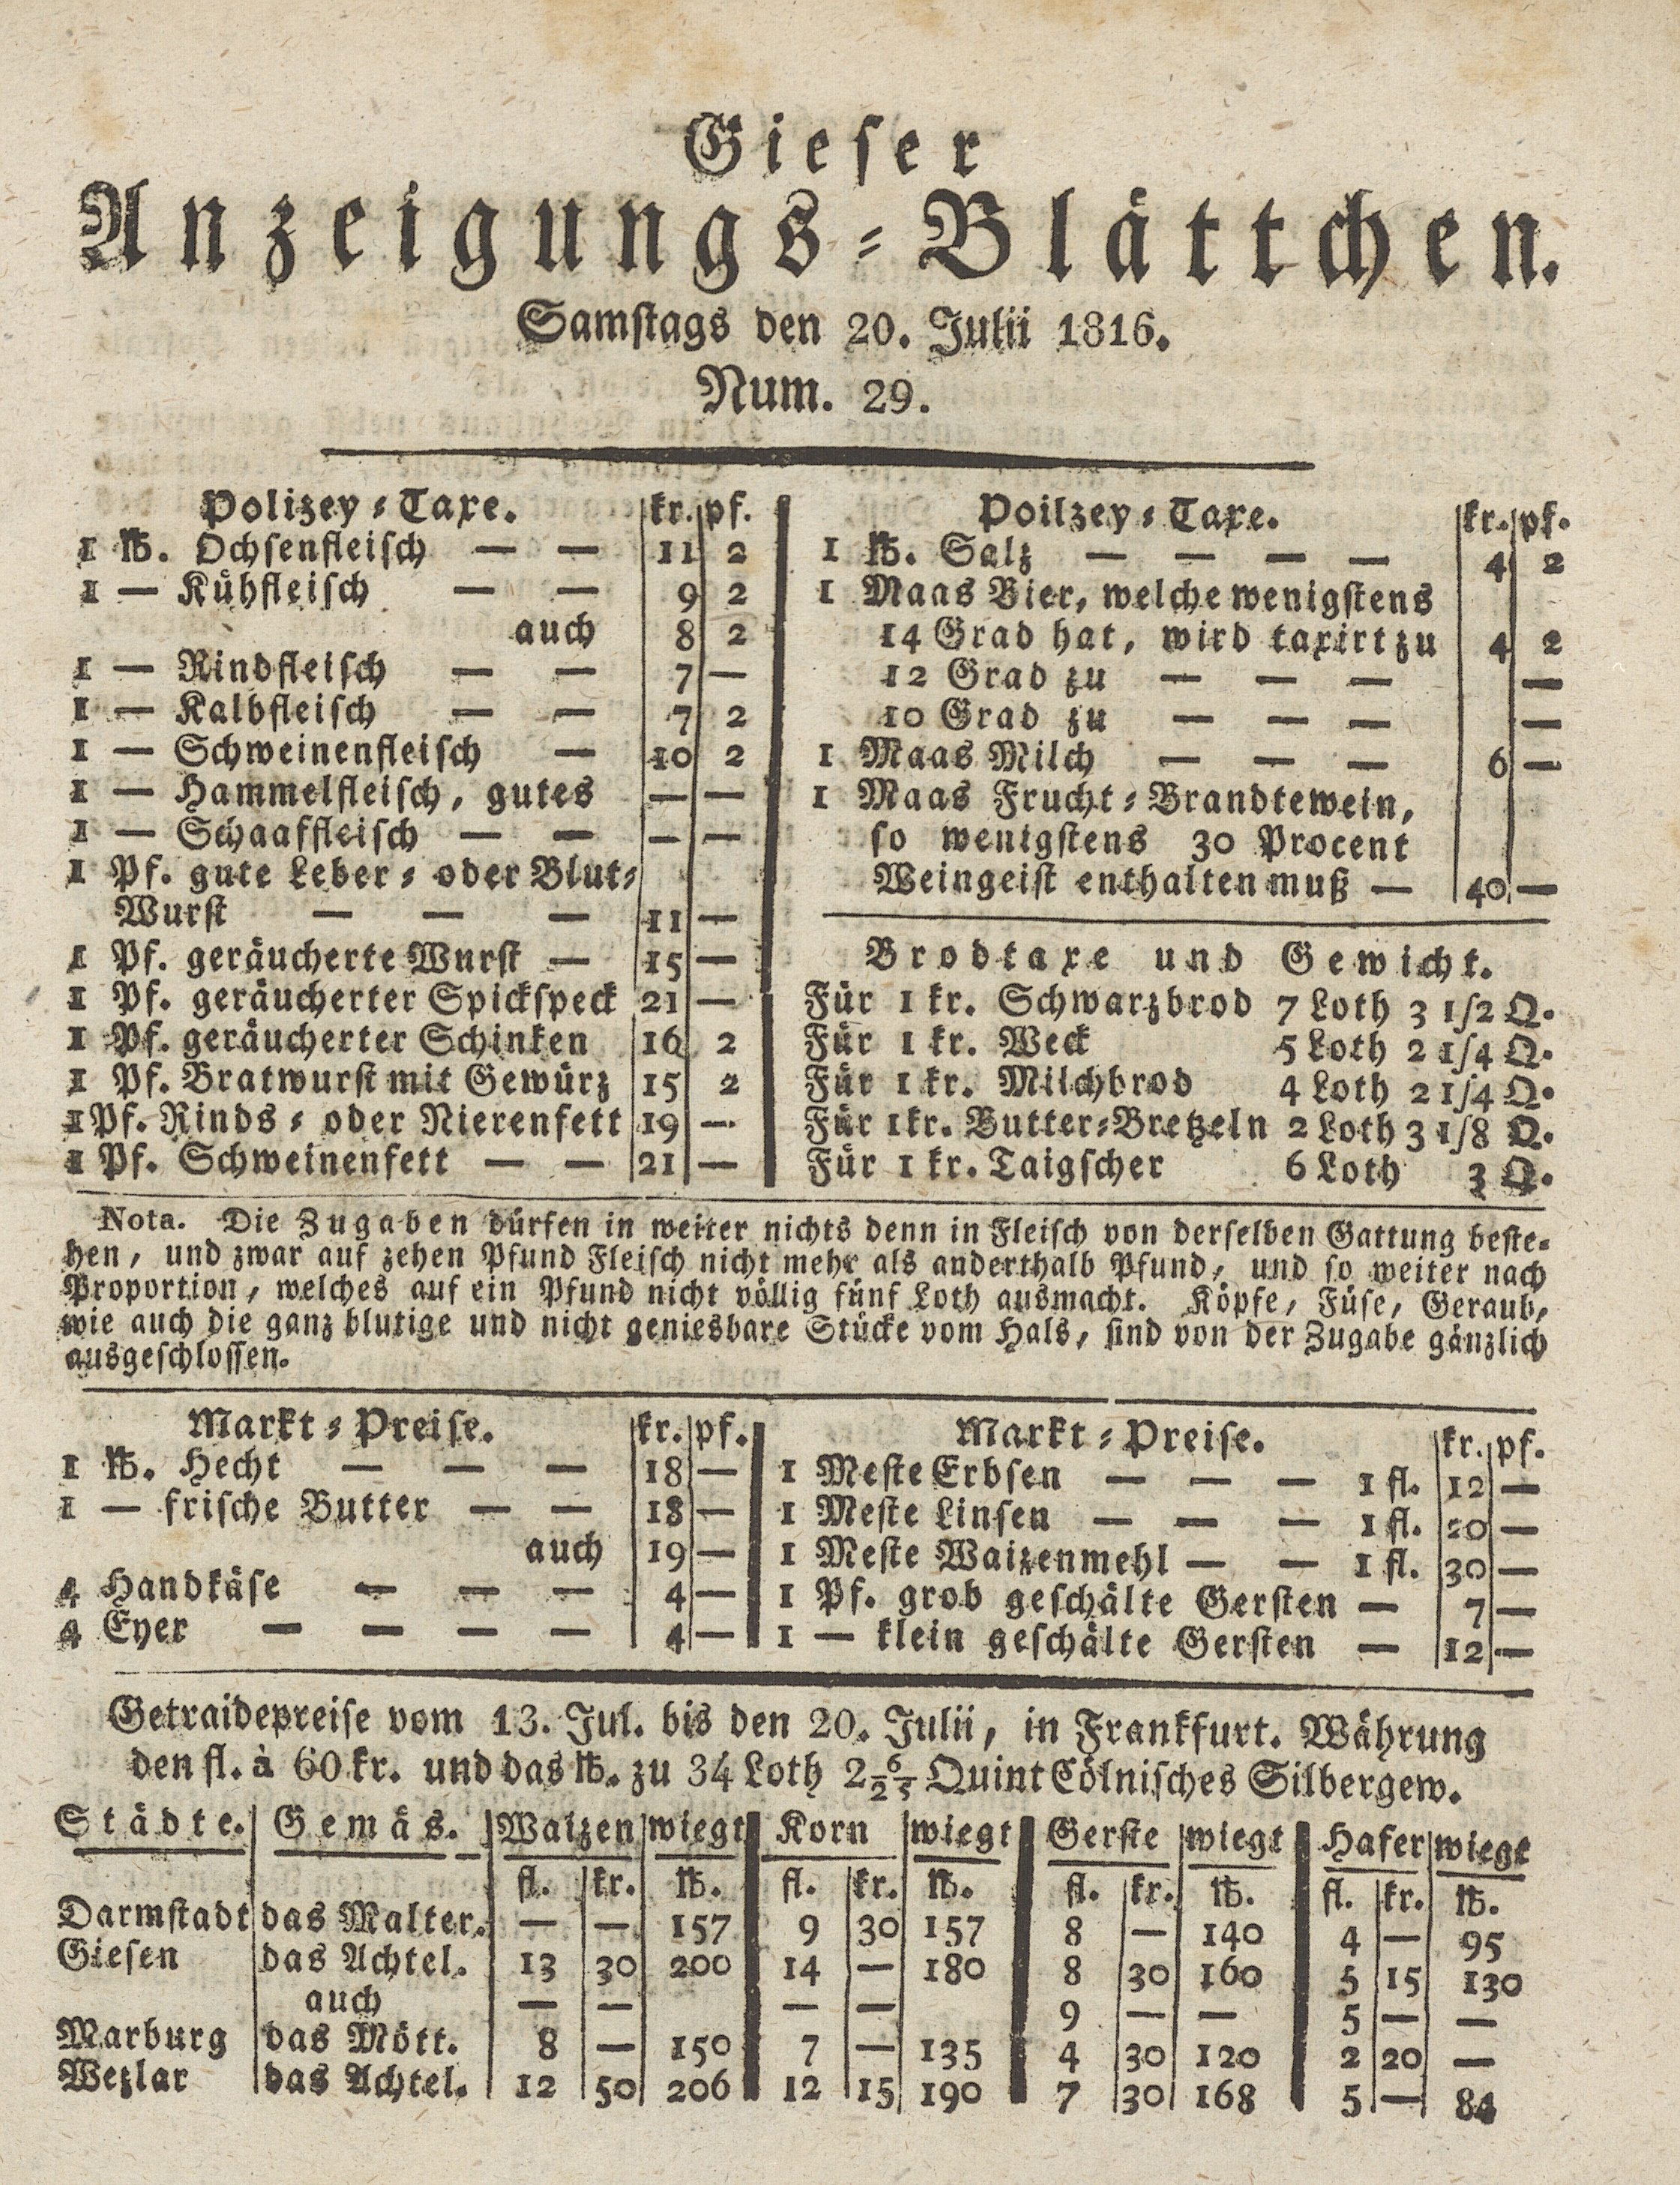 Gieser
Anzeigungs-Blättchen.
Samstags den 20. Julii 1816.
Num. 29.
Polizey-Taxe. kr. pf.
1 ℔. Ochsenfleisch — — 11 2
1 — Kühfleisch — — 9 2
auch 8 2
1 — Rindfleisch — — 7 —
1 — Kalbfleisch — — 7 2
1 — Schweinenfleisch — 10 2
1 — Hammelfleisch, gutes — —
1 — Schaaffleisch — — — —
1 Pf. gute Leber- oder Blut-
Wurst — — — 11 —
1 Pf. geräucherte Wurst — 15 —
1 Pf. geräucherter Spickspeck 21 —
1 Pf. geräucherter Schinken 16 2
1 Pf. Bratwurst mit Gewürz 15 2
1 Pf. Rinds- oder Nierenfett 19 —
1 Pf. Schweinenfett — — 21 —
Poilzey-Taxe. kr. pf.
1 ℔. Salz — — — — 4 2
1 Maas Bier, welche wenigstens
14 Grad hat, wird taxirt zu 4 2
12 Grad zu — — — —
10 Grad zu — — — —
1 Maas Milch — — — 6 —
1 Maas Frucht-Brandtewein,
so wenigstens 30 Procent
Weingeist enthalten muß — 40 —
Brodtaxe und Gewicht.
Für 1 kr. Schwarzbrod 7 Loth 3 1/2 Q.
Für 1 kr. Weck 5 Loth 2 1/4 Q.
Für 1 kr. Milchbrod 4 Loth 2 1/4 Q.
Für 1 kr. Butter-Bretzeln 2 Loth 3 1/8 Q.
Für 1 kr. Taigscher 6 Loth 3 Q.
Nota. Die Zugaben dürfen in weiter nichts denn in Fleisch von derselben Gattung beste-
hen, und zwar auf zehen Pfund Fleisch nicht mehr als anderthalb Pfund, und so weiter nach
Proportion, welches auf ein Pfund nicht völlig fünf Loth ausmacht. Köpfe, Füse, Geraub,
wie auch die ganz blutige und nicht geniesbare Stücke vom Hals, sind von der Zugabe gänzlich
ausgeschlossen.
Markt-Preise. kr. pf.
1 ℔. Hecht — — — 18 —
1 — frische Butter — — 18 —
auch 19 —
4 Handkäse — — — 4 —
4 Eyer — — — — 4 —
Markt-Preise. kr. pf.
1 Meste Erbsen — — — 1 fl. 12 —
1 Meste Linsen — — — 1 fl. 20 —
1 Meste Waizenmehl — — 1 fl. 30 —
1 Pf. grob geschälte Gersten — 7 —
1 — klein geschälte Gersten — 12 —
Getraidepreise vom 13. Jul. bis den 20. Julii, in Frankfurt. Währung
den fl. à 60 kr. und das ℔. zu 34 Loth 2 6/25 Quint Cölnisches Silbergew.
Städte. Gemäs. Waizen wiegt Korn wiegt Gerste wiegt Hafer wiegt
fl. kr. ℔. fl. kr. ℔. fl. kr. ℔. fl. kr. ℔.
Darmstadt das Malter. — — 157 9 30 157 8 — 140 4 — 95
Giesen das Achtel. 13 30 200 14 — 180 8 30 160 5 15 130
auch — — — — 9 — — 5 — —
Marburg das Mött. 8 — 150 7 — 135 4 30 120 2 20 —
Wetzlar das Achtel. 12 50 206 12 15 190 7 30 168 5 — 84